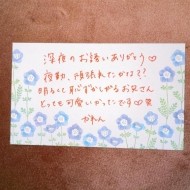 深夜のお誘いありがとう♡
夜勤、頑張れたかなぁ??
明るくて恥ずかしがるお兄さん
とっても可愛いかったです♡笑
かれん